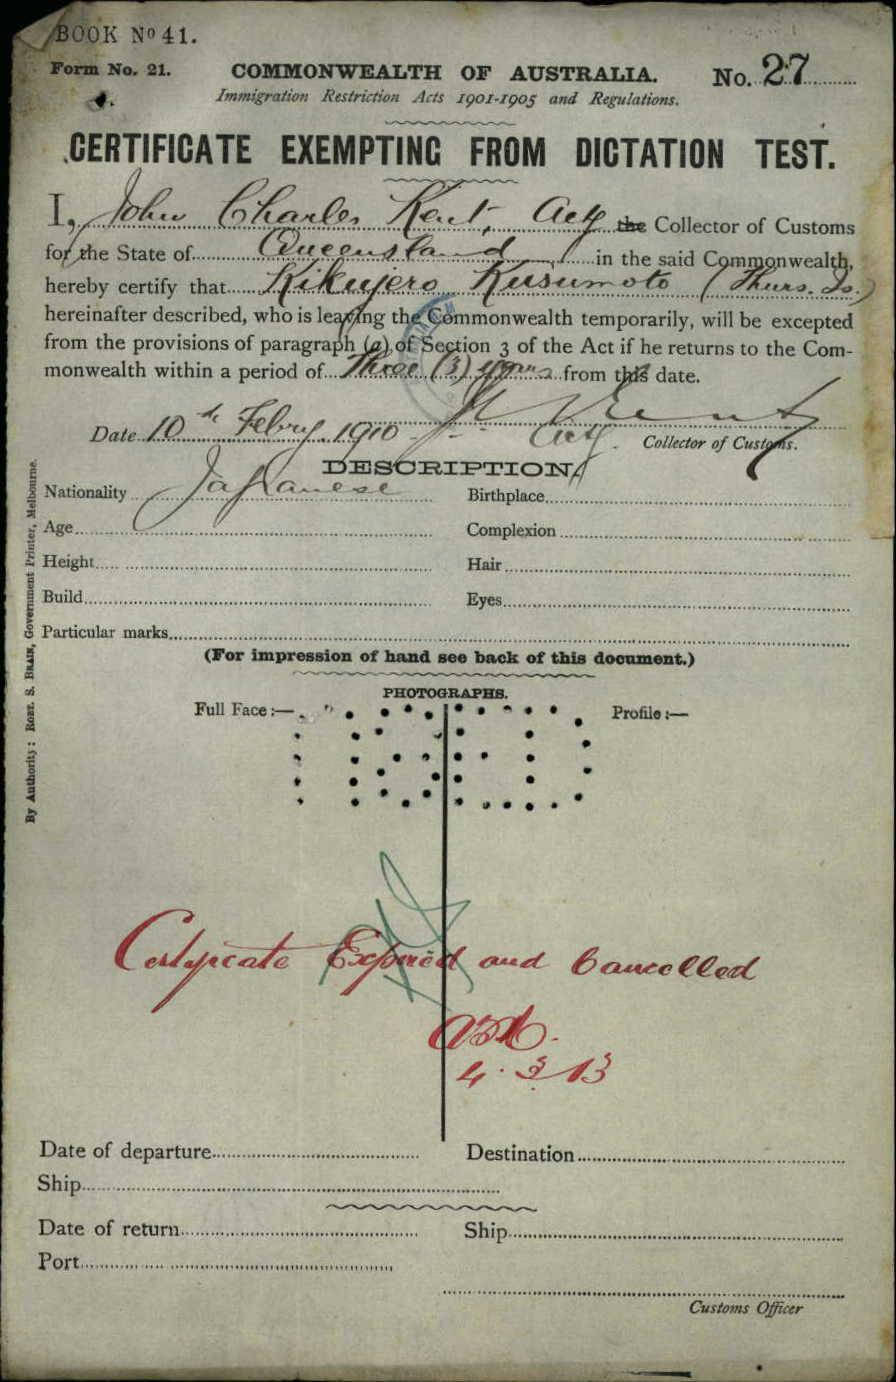 BOOK No 41.
Form No. 21.
COMMONWEALTH OF AUSTRALIA.
No. 27
Immigration Restriction Acts 1901-1905 and Regulations.
CERTIFICATE EXEMPTING FROM DICTATION TEST.
I, John Charles Kent, Actg the Collector of Customs
for the State of Queensland in the said Commonwealth,
hereby certify that Kikujero Kusumoto (Thurs. Is.)
hereinafter described, who is leaving the Commonwealth temporarily, will be excepted
from the provisions of paragraph (a) of Section 3 of the Act if he returns to the Com-
monwealth within a period of Three (3) years from this date.
Date 10th Febry. 1910
Actg. Collector of Customs.
DESCRIPTION.
Nationality Japanese
Birthplace
Age
Complexion
Height
Hair
Build
Eyes
Particular marks
(For impression of hand see back of this document.)
PHOTOGRAPHS.
Full Face:—
Profile:—
Certificate Expired and Cancelled
4.3.13
Date of departure
Destination
Ship
Date of return
Ship
Port
Customs Officer
By Authority: ROBT. S. BRAIN, Government Printer, Melbourne.